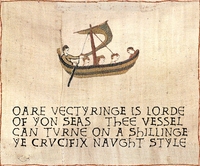 OARE VECTYRINGE IS LORDE
OF YON SEAS THEE VESSEL
CAN TVRNE ON A SHILLINGE
YE CRVCIFIX NAVGHT STYLE